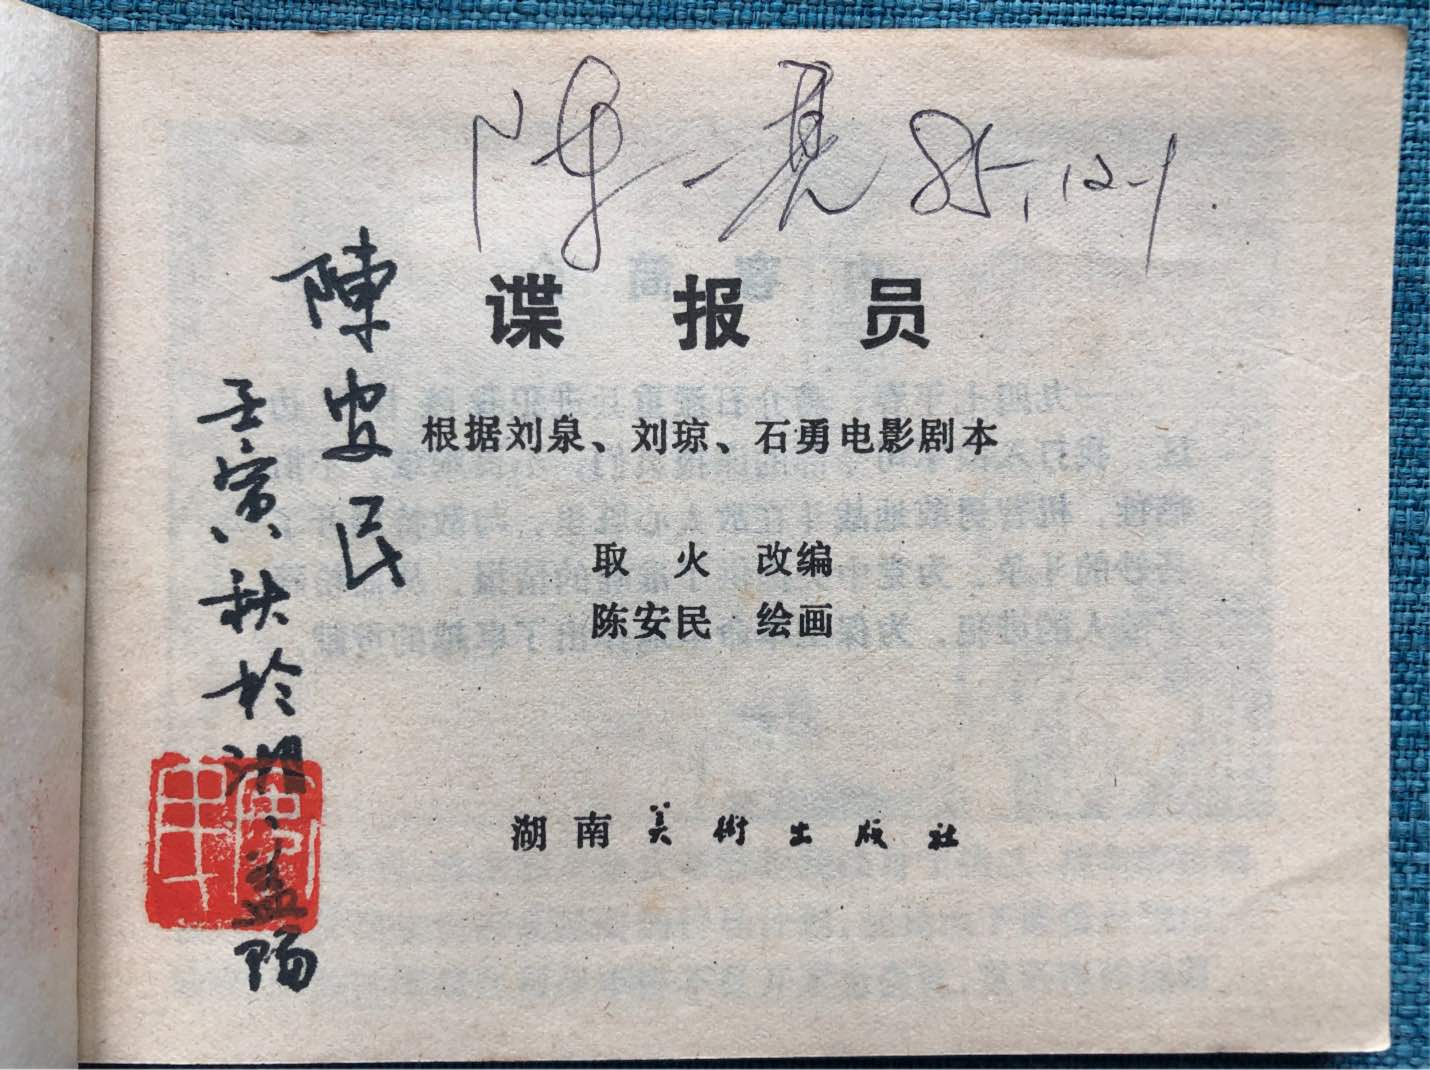 陈一亮 85.12.1
谍报员
根据刘泉、刘琼、石勇电影剧本
取火 改编
陈安民 绘画
湖南美術出版社
陳安民
壬寅秋於湖·益陽